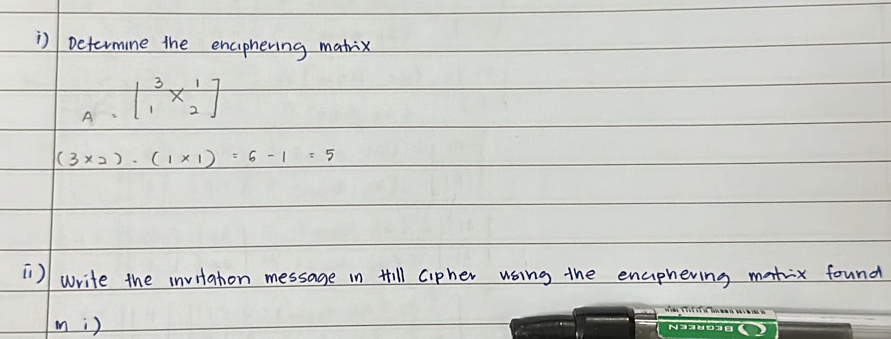 i) Determine the enciphering matrix
A = [ 3 × 1
1 2 ]
(3 × 2) - (1 × 1) = 6 - 1 = 5
ii) Write the invitation message in Hill Cipher using the enciphering matrix found
in i)
BEGREEN